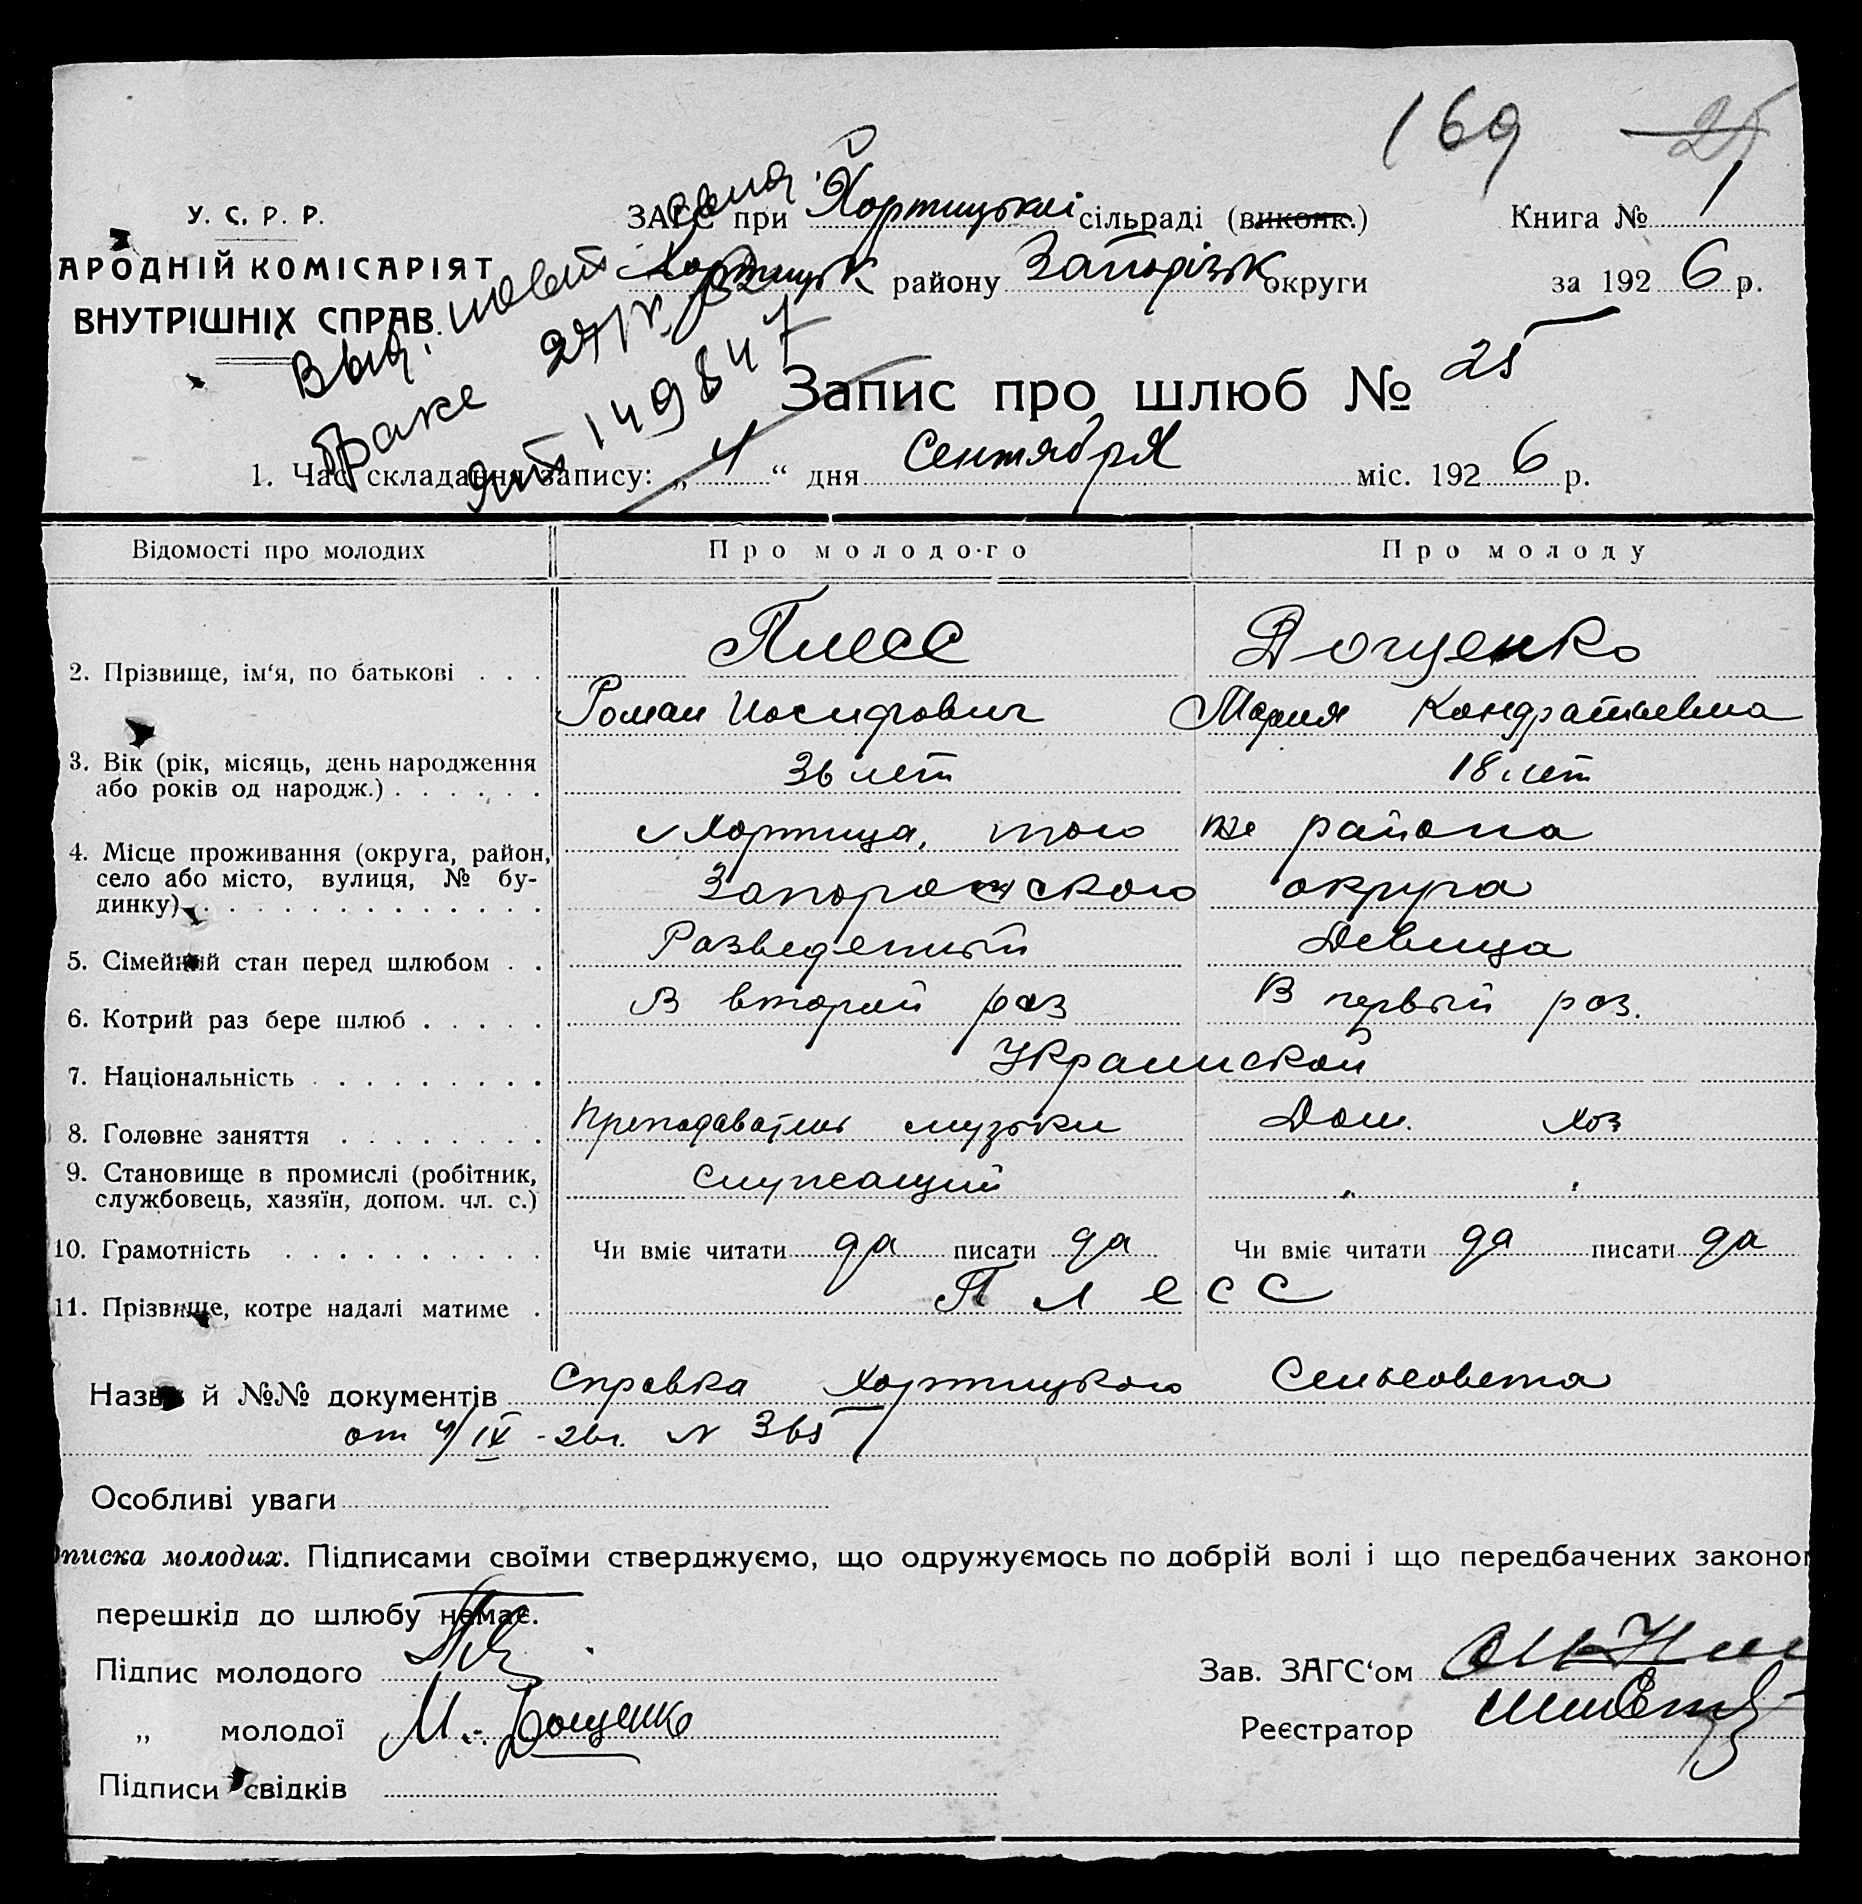 169 25
У. С. Р. Р.
АРОДНІЙ КОМІСАРІЯТ
ВНУТРІШНІХ СПРАВ.
ЗАГС при Хортицькій сільраді (виконк.)
Хортицьк району Запорізьк округи
Книга № 1
за 1926 р.
Выд. повт
браке 24/IV
149847
Запис про шлюб № 25
1. Час складання запису: „4“ дня Сентября міс. 1926 р.
Відомості про молодих Про молодого Про молоду
2. Прізвище, ім'я, по батькові Плесс Дощенко
Роман Иосифович Мария Кондратьевна
3. Вік (рік, місяць, день народження
або років од народж.) 36 лет 18 лет
4. Місце проживання (округа, район, Хортица, того же района
село або місто, вулиця, № бу-
динку) Запорожского округа
5. Сімейний стан перед шлюбом Разведенный Девица
6. Котрий раз бере шлюб В второй раз В первый раз.
7. Національність Украинской
8. Головне заняття Преподаватель музыки Дом. хоз
9. Становище в промислі (робітник,
службовець, хазяїн, допом. чл. с.) Служащий " "
10. Грамотність Чи вміє читати да писати да Чи вміє читати да писати да
11. Прізвище, котре надалі матиме Плесс
Назви й №№ документів Справка Хортицкого Сельсовета
от 4/IX - 26г. N 365
Особливі уваги
писка молодих. Підписами своїми стверджуємо, що одружуємось по добрій волі і що передбачених законом
перешкід до шлюбу немає.
Підпис молодого
„ молодої М. Дощенко
Підписи свідків
Зав. ЗАГС'ом
Реєстратор